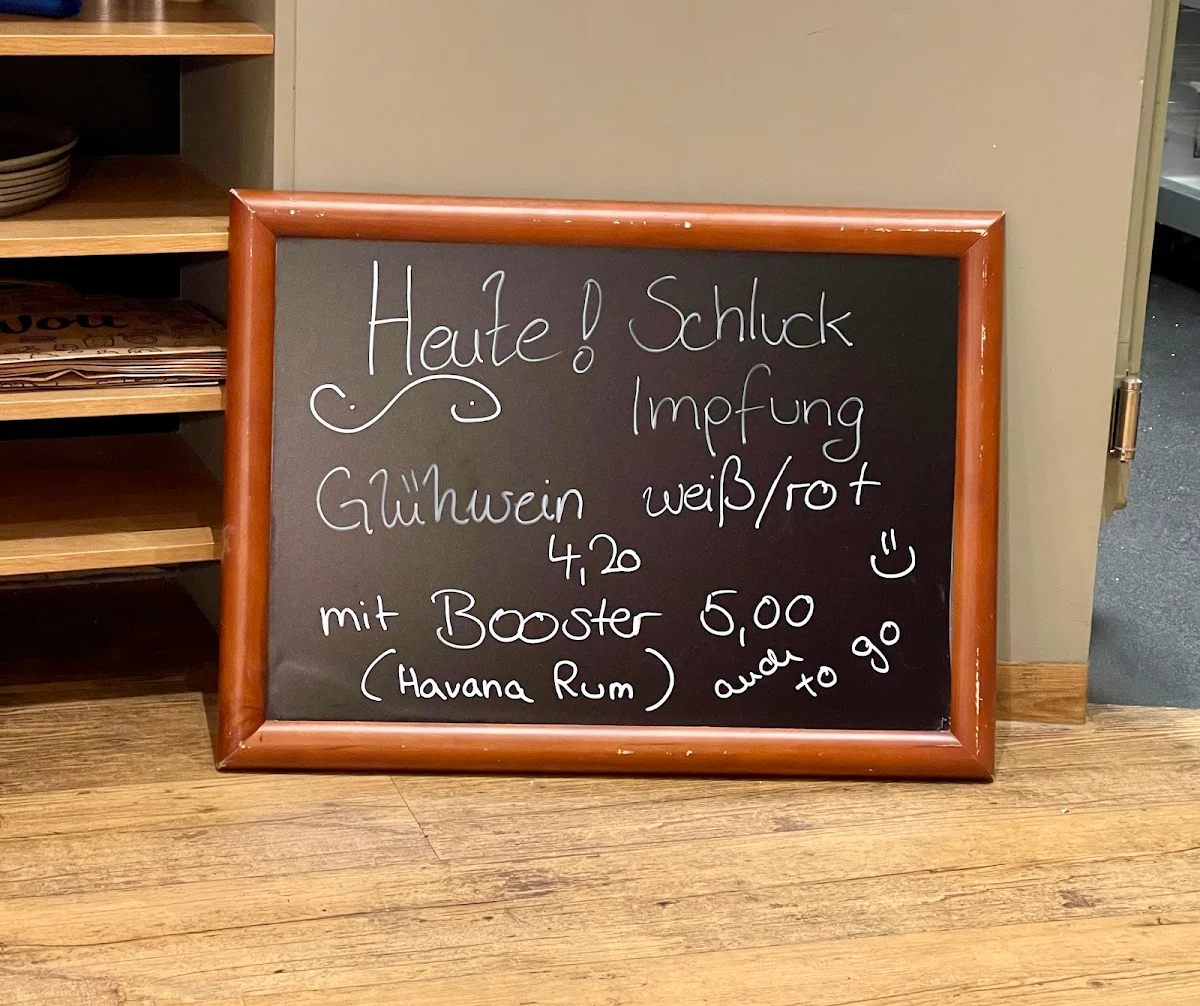 Heute! Schluck
Impfung
Glühwein weiß/rot
4,20
mit Booster 5,00
(Havana Rum) auch to go